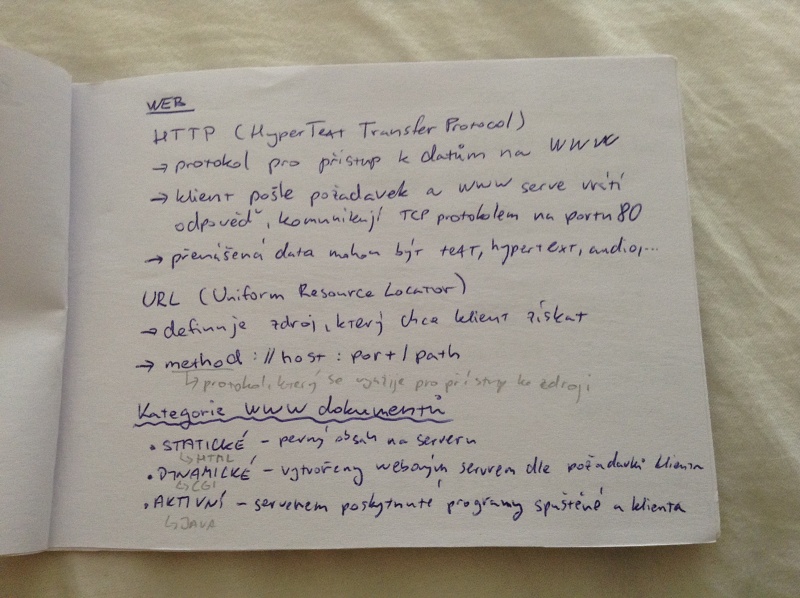 WEB
HTTP (HyperText Transfer Protocol)
→ protokol pro přístup k datům na WWW
→ klient pošle požadavek a WWW serve vrátí
odpověď, komunikují TCP protokolem na portu 80
→ přenášená data mohou být text, hypertext, audio,...
URL (Uniform Resource Locator)
→ definuje zdroj, který chce klient získat
→ method://host:port/path
↳ protokol, který se využije pro přístup ke zdroji
Kategorie WWW dokumentů
• STATICKÉ – pevný obsah na serveru
↳ HTML
• DYNAMICKÉ – vytvořeny webovým serverem dle požadavků klienta
↳ CGI
• AKTIVNÍ – serverem poskytnuté programy spuštěné u klienta
↳ JAVA